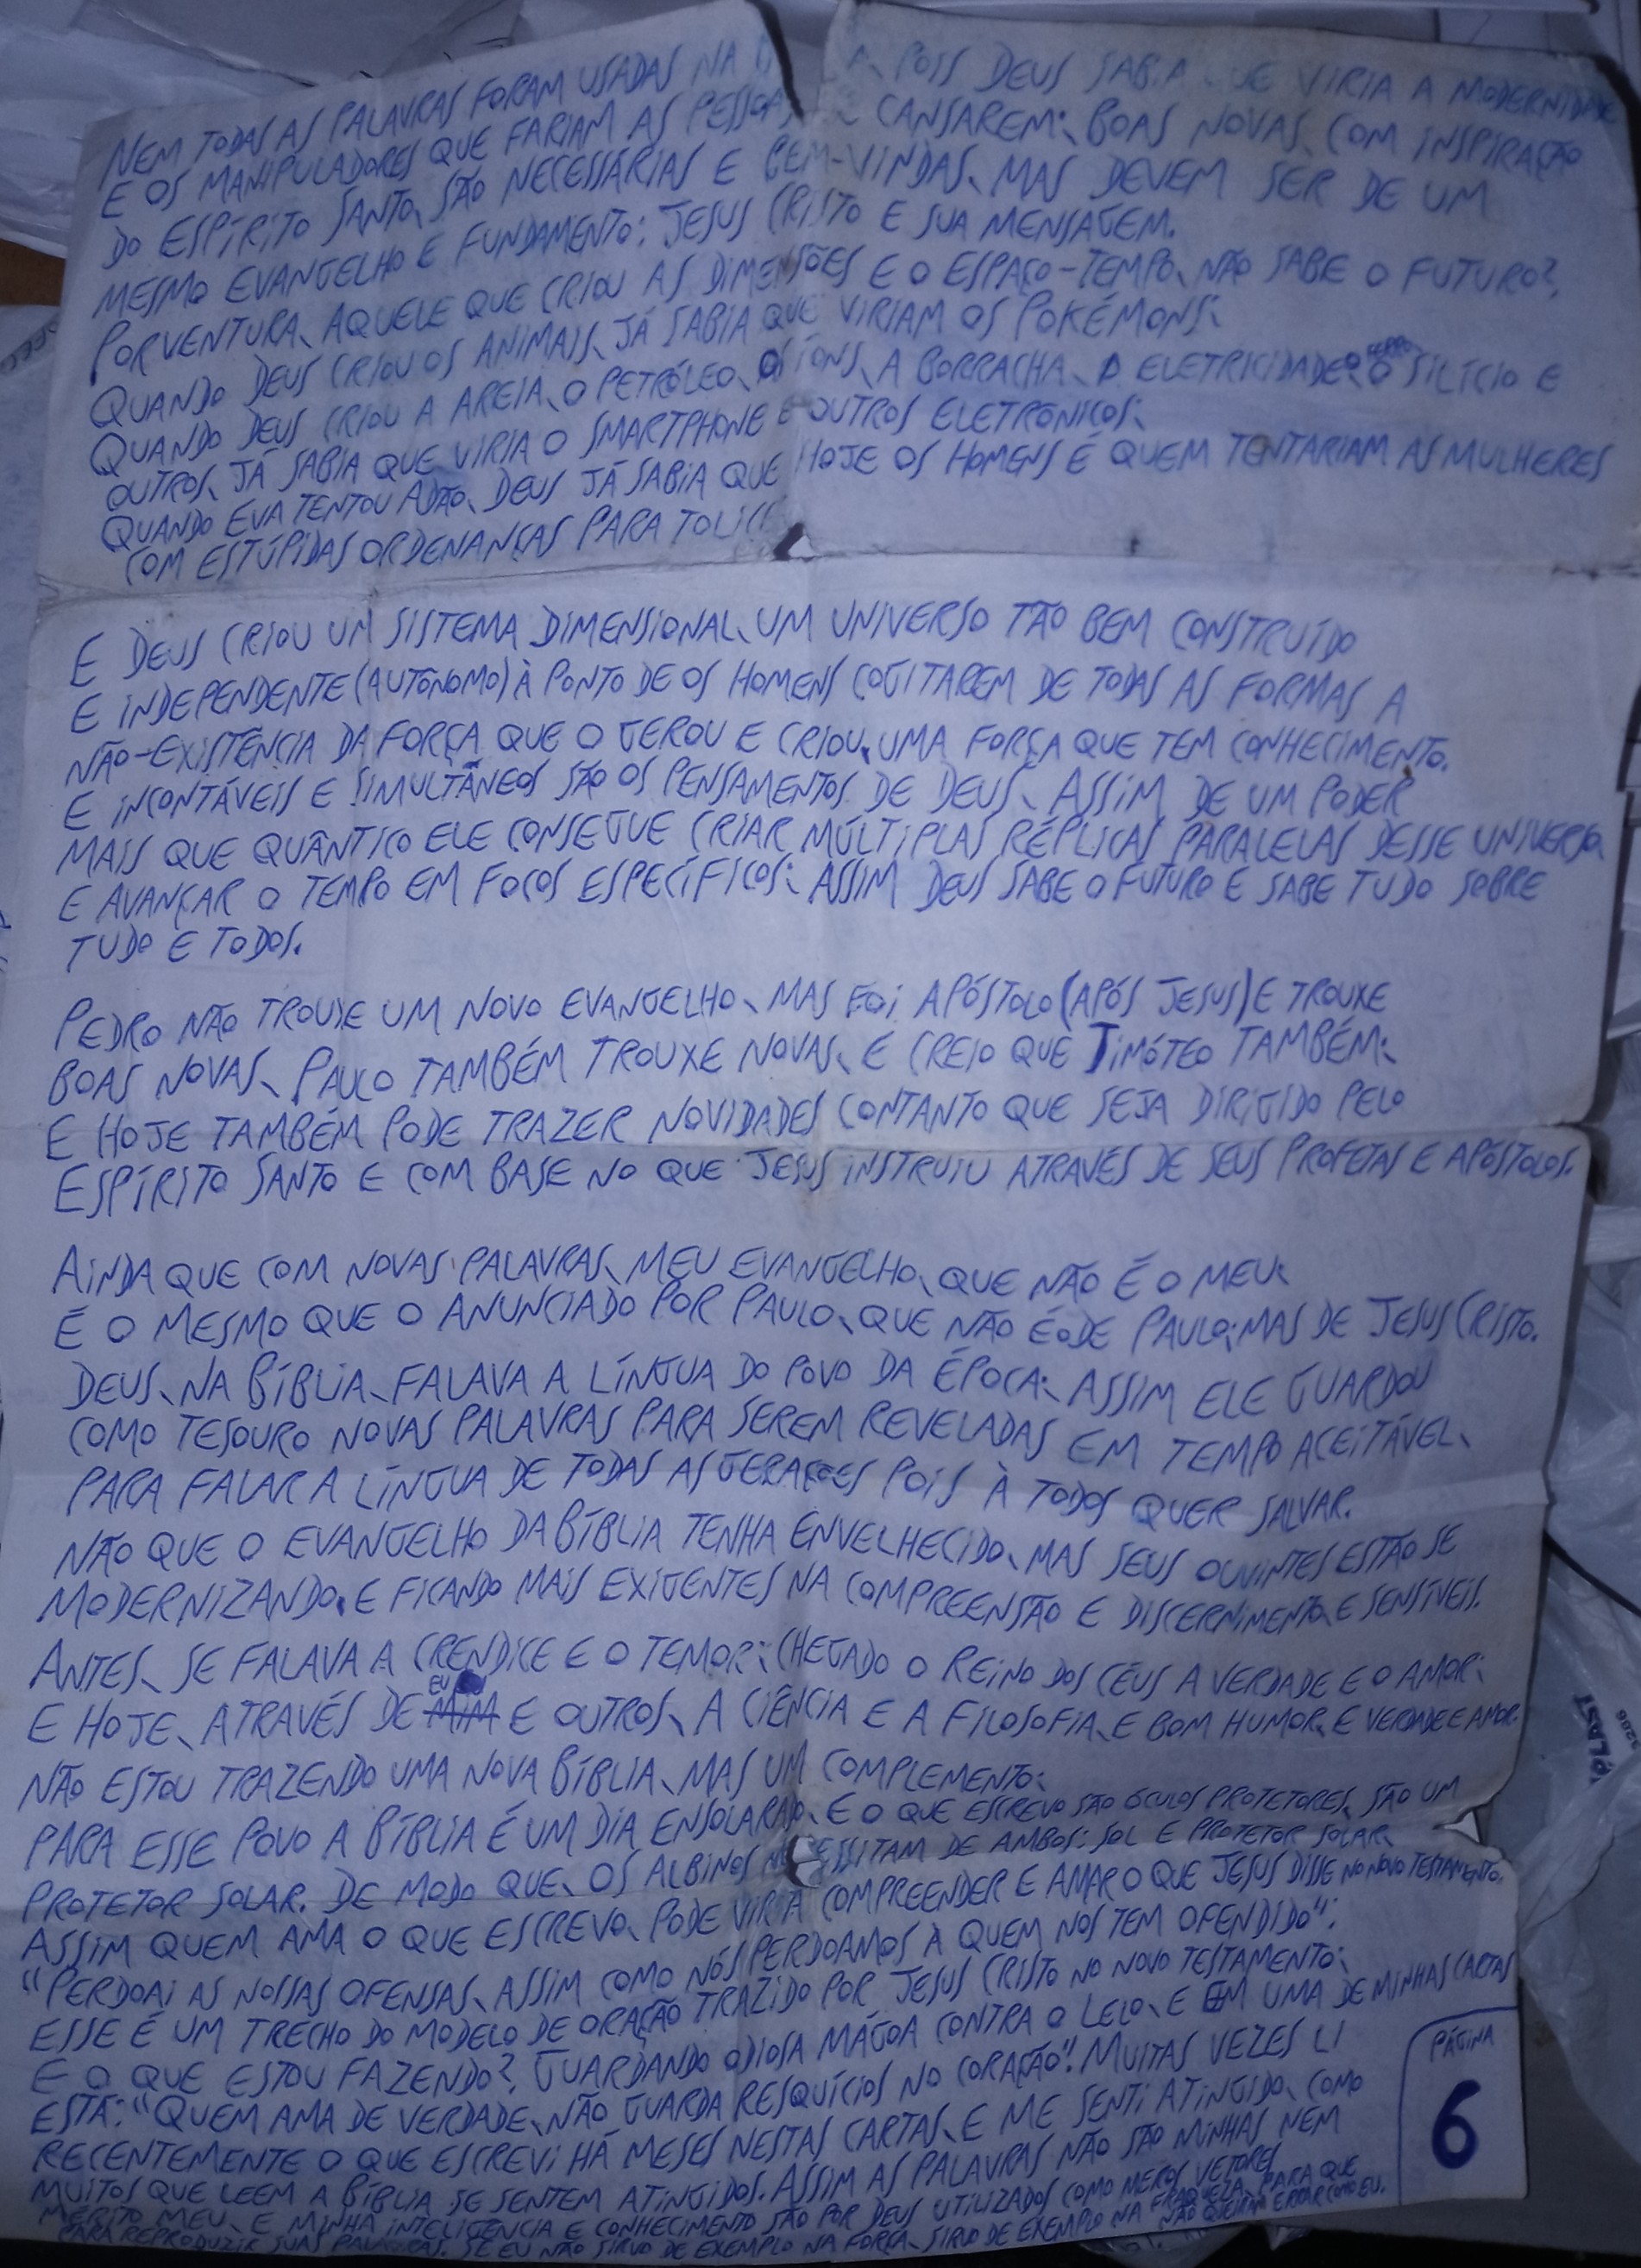 NEM TODAS AS PALAVRAS FORAM USADAS NA POIS DEUS SABIA QUE VIRIA A MODERNIDADE
E OS MANIPULADORES QUE FARIAM AS PESSOAS SE CANSAREM; BOAS NOVAS, COM INSPIRAÇÃO
DO ESPÍRITO SANTO, SÃO NECESSÁRIAS E BEM-VINDAS, MAS DEVEM SER DE UM
MESMO EVANGELHO E FUNDAMENTO: JESUS CRISTO E SUA MENSAGEM.
PORVENTURA, AQUELE QUE CRIOU AS DIMENSÕES E O ESPAÇO-TEMPO, NÃO SABE O FUTURO?,
QUANDO DEUS CRIOU OS ANIMAIS, JÁ SABIA QUE VIRIAM OS POKÉMONS;
QUANDO DEUS CRIOU A AREIA, O PETRÓLEO, OS ÍONS, A BORRACHA, A ELETRICIDADE, O FERRO, O SILÍCIO E
OUTROS, JÁ SABIA QUE VIRIA O SMARTPHONE E OUTROS ELETRÔNICOS;
QUANDO EVA TENTOU ADÃO, DEUS JÁ SABIA QUE HOJE OS HOMENS É QUEM TENTARIAM AS MULHERES
COM ESTÚPIDAS ORDENANÇAS PARA
E DEUS CRIOU UM SISTEMA DIMENSIONAL, UM UNIVERSO TÃO BEM CONSTRUÍDO
E INDEPENDENTE (AUTÔNOMO) À PONTO DE OS HOMENS COGITAREM DE TODAS AS FORMAS A
NÃO-EXISTÊNCIA DA FORÇA QUE O GEROU E CRIOU, UMA FORÇA QUE TEM CONHECIMENTO.
E INCONTÁVEIS E SIMULTÂNEOS SÃO OS PENSAMENTOS DE DEUS, ASSIM DE UM PODER
MAIS QUE QUÂNTICO ELE CONSEGUE CRIAR MÚLTIPLAS RÉPLICAS PARALELAS DESSE UNIVERSO
E AVANÇAR O TEMPO EM FOCOS ESPECÍFICOS; ASSIM DEUS SABE O FUTURO E SABE TUDO SOBRE
TUDO E TODOS.
PEDRO NÃO TROUXE UM NOVO EVANGELHO, MAS FOI APÓSTOLO (APÓS JESUS) E TROUXE
BOAS NOVAS, PAULO TAMBÉM TROUXE NOVAS, E CREIO QUE TIMÓTEO TAMBÉM;
E HOJE TAMBÉM PODE TRAZER NOVIDADES CONTANTO QUE SEJA DIRIGIDO PELO
ESPÍRITO SANTO E COM BASE NO QUE JESUS INSTRUIU ATRAVÉS DE SEUS PROFETAS E APÓSTOLOS.
AINDA QUE COM NOVAS PALAVRAS, MEU EVANGELHO, QUE NÃO É O MEU;
É O MESMO QUE O ANUNCIADO POR PAULO, QUE NÃO É O DE PAULO; MAS DE JESUS CRISTO.
DEUS, NA BÍBLIA, FALAVA A LÍNGUA DO POVO DA ÉPOCA; ASSIM ELE GUARDOU
COMO TESOURO NOVAS PALAVRAS PARA SEREM REVELADAS EM TEMPO ACEITÁVEL,
PARA FALAR A LÍNGUA DE TODAS AS GERAÇÕES POIS À TODOS QUER SALVAR.
NÃO QUE O EVANGELHO DA BÍBLIA TENHA ENVELHECIDO, MAS SEUS OUVINTES ESTÃO SE
MODERNIZANDO, E FICANDO MAIS EXIGENTES NA COMPREENSÃO E DISCERNIMENTO, E SENSÍVEIS.
ANTES, SE FALAVA A CRENDICE E O TEMOR; CHEGADO O REINO DOS CÉUS A VERDADE E O AMOR;
E HOJE, ATRAVÉS DE MIM EU E OUTROS, A CIÊNCIA E A FILOSOFIA, E BOM HUMOR, E VERDADE E AMOR.
NÃO ESTOU TRAZENDO UMA NOVA BÍBLIA, MAS UM COMPLEMENTO;
PARA ESSE POVO A BÍBLIA É UM DIA ENSOLARADO, E O QUE ESCREVO SÃO ÓCULOS PROTETORES, SÃO UM
PROTETOR SOLAR. DE MODO QUE, OS ALBINOS NECESSITAM DE AMBOS: SOL E PROTETOR SOLAR,
ASSIM QUEM AMA O QUE ESCREVO, PODE VIR À COMPREENDER E AMAR O QUE JESUS DISSE NO NOVO TESTAMENTO.
"PERDOAI AS NOSSAS OFENSAS, ASSIM COMO NÓS PERDOAMOS À QUEM NOS TEM OFENDIDO";
ESSE É UM TRECHO DO MODELO DE ORAÇÃO TRAZIDO POR JESUS CRISTO NO NOVO TESTAMENTO;
E O QUE ESTOU FAZENDO?, GUARDANDO ODIOSA MÁGOA CONTRA O LELO, E EM UMA DE MINHAS CARTAS
ESTÁ: "QUEM AMA DE VERDADE, NÃO GUARDA RESQUÍCIOS NO CORAÇÃO". MUITAS VEZES LI
RECENTEMENTE O QUE ESCREVI HÁ MESES NESTAS CARTAS, E ME SENTI ATINGIDO, COMO
MUITOS QUE LEEM A BÍBLIA SE SENTEM ATINGIDOS. ASSIM AS PALAVRAS NÃO SÃO MINHAS NEM
MÉRITO MEU, E MINHA INTELIGÊNCIA E CONHECIMENTO SÃO POR DEUS UTILIZADOS COMO MEROS VETORES
PARA REPRODUZIR SUAS PALAVRAS. SE EU NÃO SIRVO DE EXEMPLO NA FORÇA, SIRVO DE EXEMPLO NA FRAQUEZA, PARA QUE
NÃO QUEIRAM ERRAR COMO EU.
PÁGINA
6